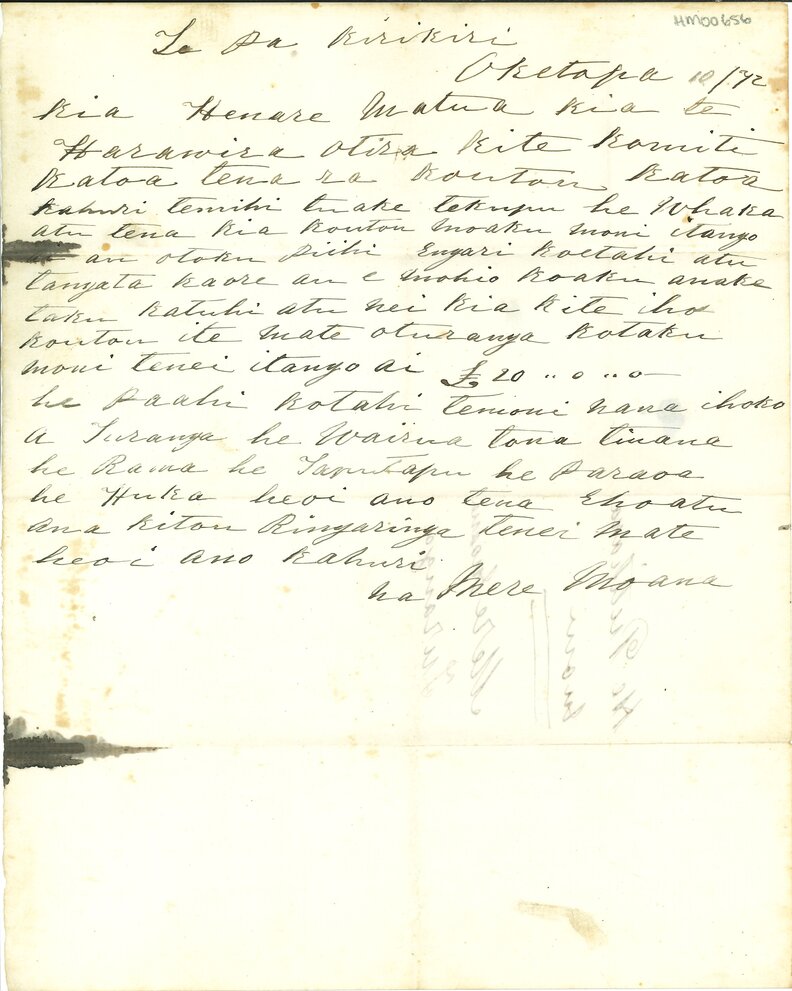 HM00656
Te Pa Kirikiri
Oketopa 10/72
Kia Henare Matua Kia te
Harawira otira Kite Komiti
Katoa tena ra Koutou Katoa
Kahuri temihi tuake tekupu he Whaka
atu tena Kia Koutou moaku moni itango
ai au otoku Piihi Engari Kotahi atu
tangata Kaore au e mohio Koaku anake
taku Katuhi atu nei Kia Kite iho
Koutou ite mate oturanga Kotaku
moni tenei itango ai £20 " 0 " 0
he Paahi Kotahi temoni nana ihoko
A Turanga he Wairua tona tinana
he Rama he Taputapu he Paraoa
he Huka heoi ano tena Ehoatu
ana Kitou Ringaringa tenei mate
heoi ano Kahuri
na Mere Moana